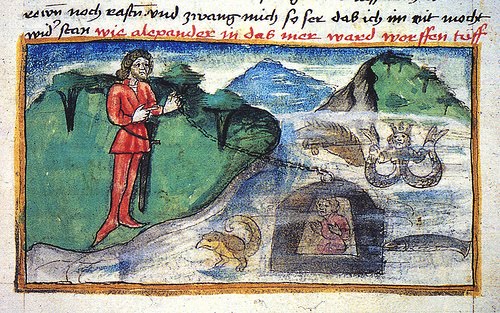 noch rasten vnd zwang mich so ser das ich im nit mocht
wid' stan wie alexander in das mer ward worffen tüff